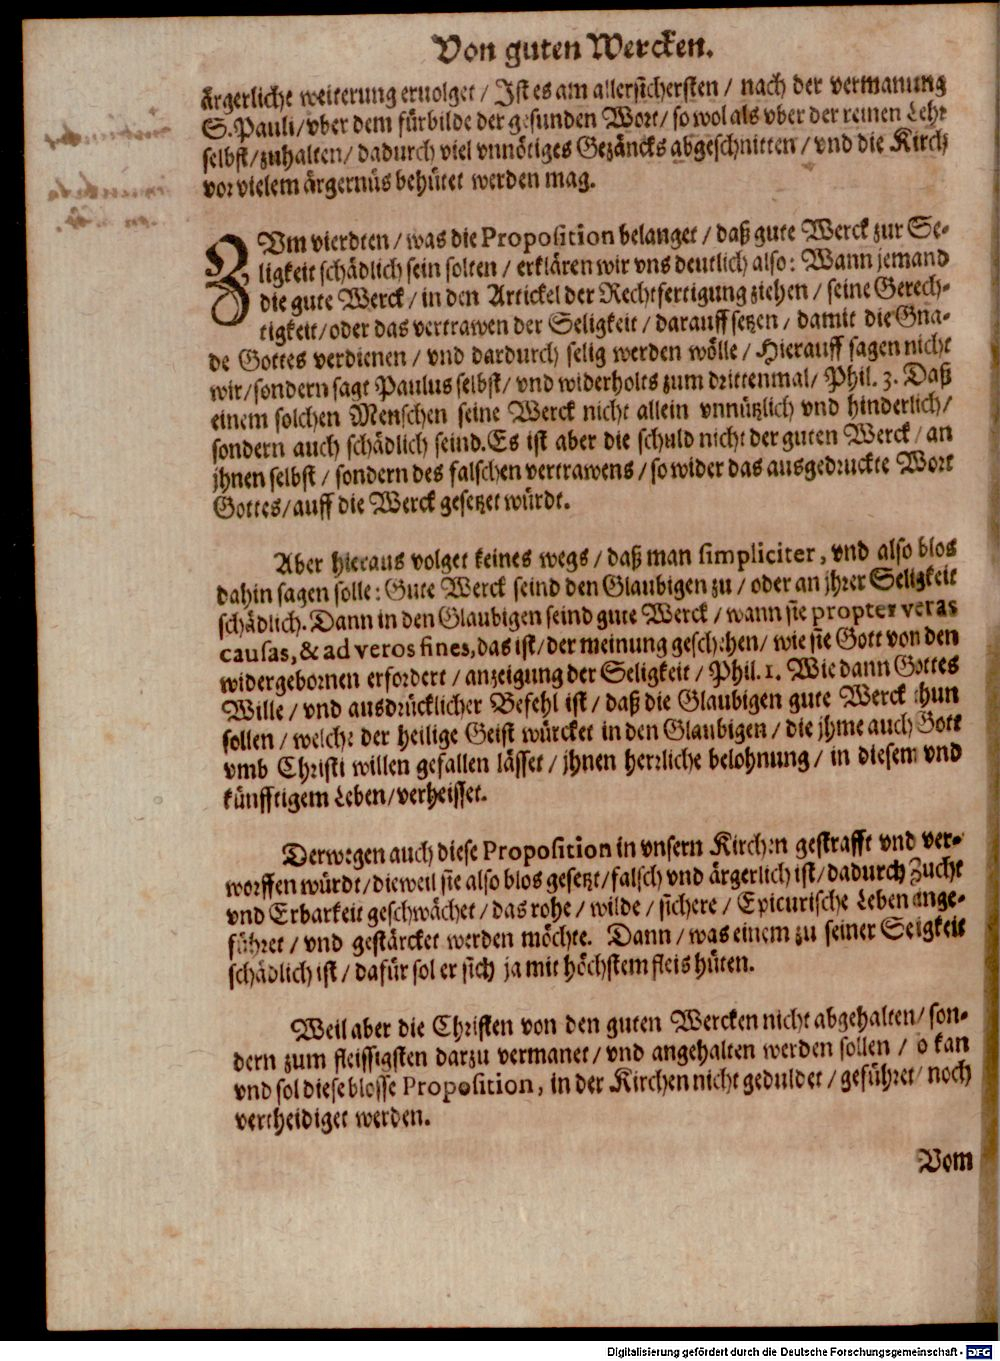 Von guten Wercken.
ärgerliche weiterung eruolget / Ist es am allersichersten / nach der vermanung
S. Pauli / vber dem fürbilde der gesunden Wort / so wol als vber der reinen Lehr
selbst / zuhalten / dadurch viel vnnötiges Gezäncks abgeschnitten / vnd die Kirch
vor vielem ärgernüs behütet werden mag.
ZVm vierdten / was die Proposition belanget / daß gute Werck zur Se-
ligkeit schädlich sein solten / erklären wir vns deutlich also: Wann jemand
die gute Werck / in den Artickel der Rechtfertigung ziehen / seine Gerech-
tigkeit / oder das vertrawen der Seligkeit / darauff setzen / damit die Gna-
de Gottes verdienen / vnd dardurch selig werden wölle / Hierauff sagen nicht
wir / sondern sagt Paulus selbst / vnd widerholts zum drittenmal / Phil. 3. Daß
einem solchen Menschen seine Werck nicht allein vnnützlich vnd hinderlich /
sondern auch schädlich seind. Es ist aber die schuld nicht der guten Werck / an
jhnen selbst / sondern des falschen vertrawens / so wider das ausgedruckte Wort
Gottes / auff die Werck gesetzet würdt.
Aber hieraus volget keines wegs / daß man simpliciter, vnd also blos
dahin sagen solle: Gute Werck seind den Glaubigen zu / oder an jhrer Seligkeit
schädlich. Dann in den Glaubigen seind gute Werck / wann sie propter veras
causas, & ad veros fines, das ist / der meinung geschehen / wie sie Gott von den
widergebornen erfordert / anzeigung der Seligkeit / Phil. 1. Wie dann Gottes
Wille / vnd ausdrücklicher Befehl ist / daß die Glaubigen gute Werck thun
sollen / welche der heilige Geist würcket in den Glaubigen / die jhme auch Gott
vmb Christi willen gefallen lässet / jhnen herrliche belohnung / in diesem vnd
künfftigem Leben / verheisset.
Derwegen auch diese Proposition in vnsern Kirchen gestrafft vnd ver-
worffen würdt / dieweil sie also blos gesetzt / falsch vnd ärgerlich ist / dadurch Zucht
vnd Erbarkeit geschwächet / das rohe / wilde / sichere / Epicurische Leben einge-
führet / vnd gestärcket werden möchte. Dann / was einem zu seiner Seigkeit
schädlich ist / dafür sol er sich ja mit höchstem fleis hüten.
Weil aber die Christen von den guten Wercken nicht abgehalten / son-
dern zum fleissigsten darzu vermanet / vnd angehalten werden sollen / o kan
vnd sol diese blosse Proposition, in der Kirchen nicht geduldet / geführet / noch
vertheidiget werden.
Vom
Digitalisierung gefördert durch die Deutsche Forschungsgemeinschaft - DFG